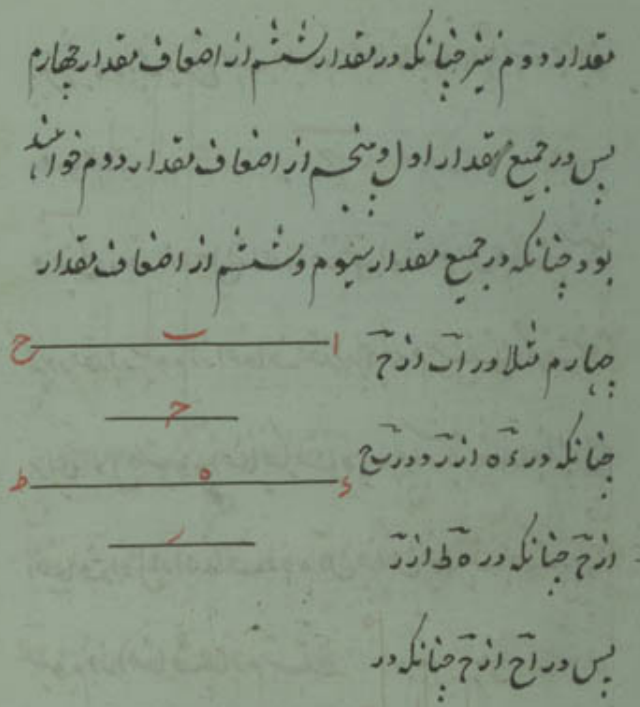 مقدار دوم نیز چنانکه در مقدار ششم از اضعاف مقدار چهارم
پس در جمیع مقدار اول و پنجم از اضعاف مقدار دوم خواهند
بود چنانکه در جمیع مقدار سیوم و ششم از اضعاف مقدار
چهارم مثلا در اب از ج
ا ب ح
ج
چنانکه در ء ه از ر و در ب ح
ء ه ط
از ج چنانکه در ه ط از ر
ر
پس در اح از ج چنانکه در